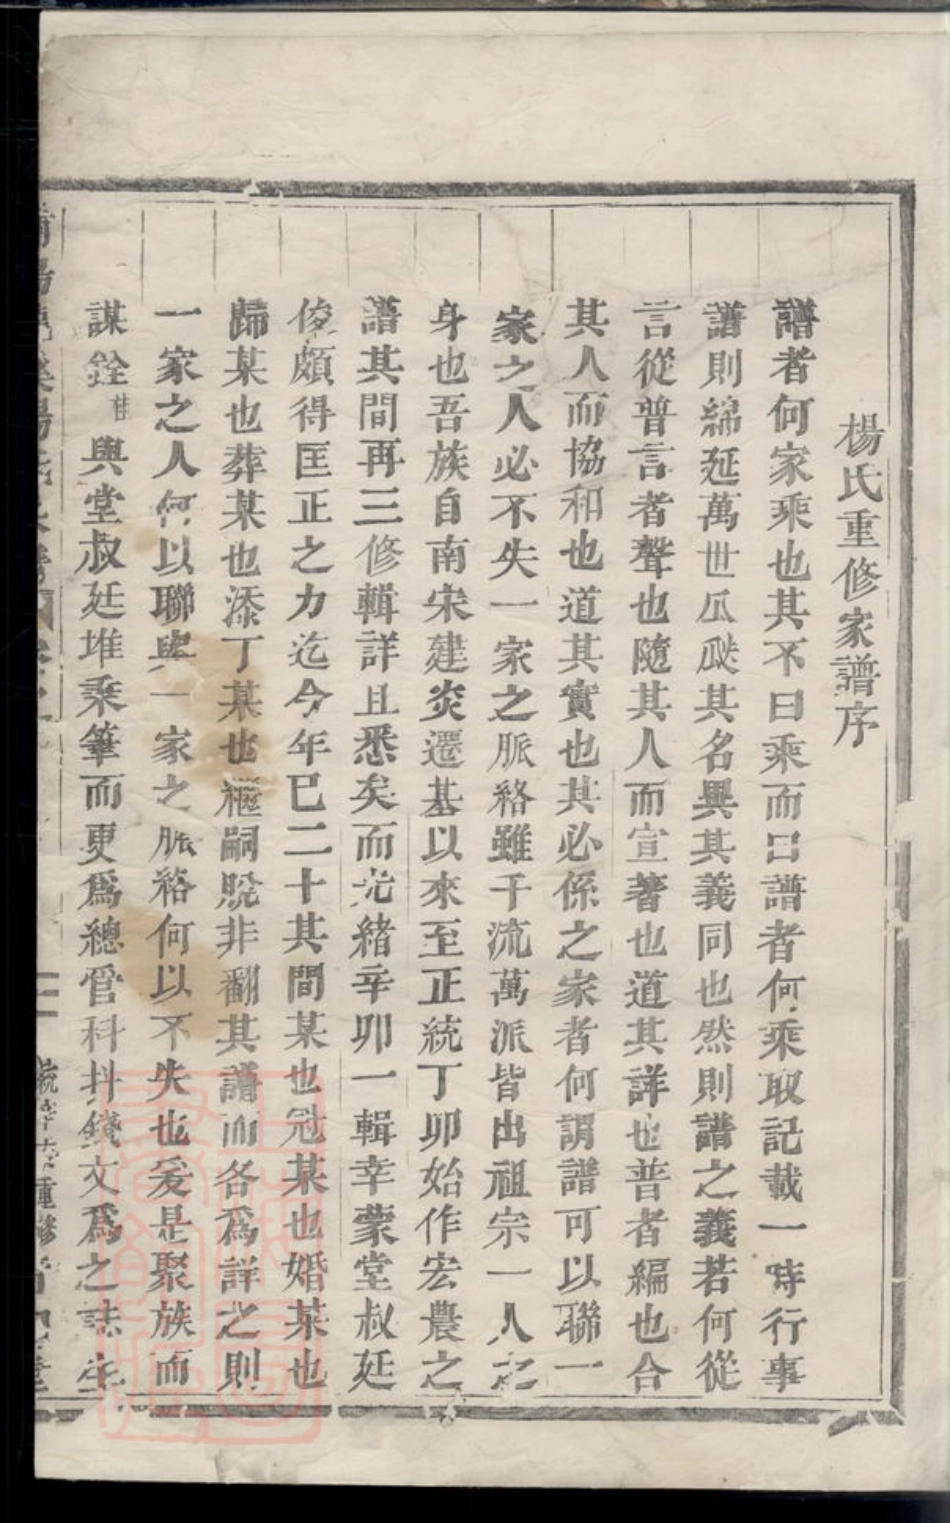 楊氏重修家譜序
譜者何家乘也其不曰乘而曰譜者何乘取記載一時行事
譜則綿延萬世瓜瓞其名異其義同也然則譜之義若何從
言從普言者聲也隨其人而宣著也道其詳也普者編也合
其人而協和也道其實也其必係之家者何謂譜可以聯一
家之人必不失一家之脈絡雖千流萬派皆出祖宗一人之
身也吾族自南宋建炎遷基以來至正統丁卯始作宏農之
譜其間再三修輯詳且悉矣而光緒辛卯一輯幸蒙堂叔廷
俊頗得匡正之力迄今年已二十其間某也冠某也婚某也
歸某也葬某也添丁某也繼嗣脫非翻其譜而各為詳之則
一家之人何以聯與一家之脈絡何以不失也爰是聚族而
謀銓桂與堂叔廷堆乘筆而更為總管科抖錢文為之誌生
重修